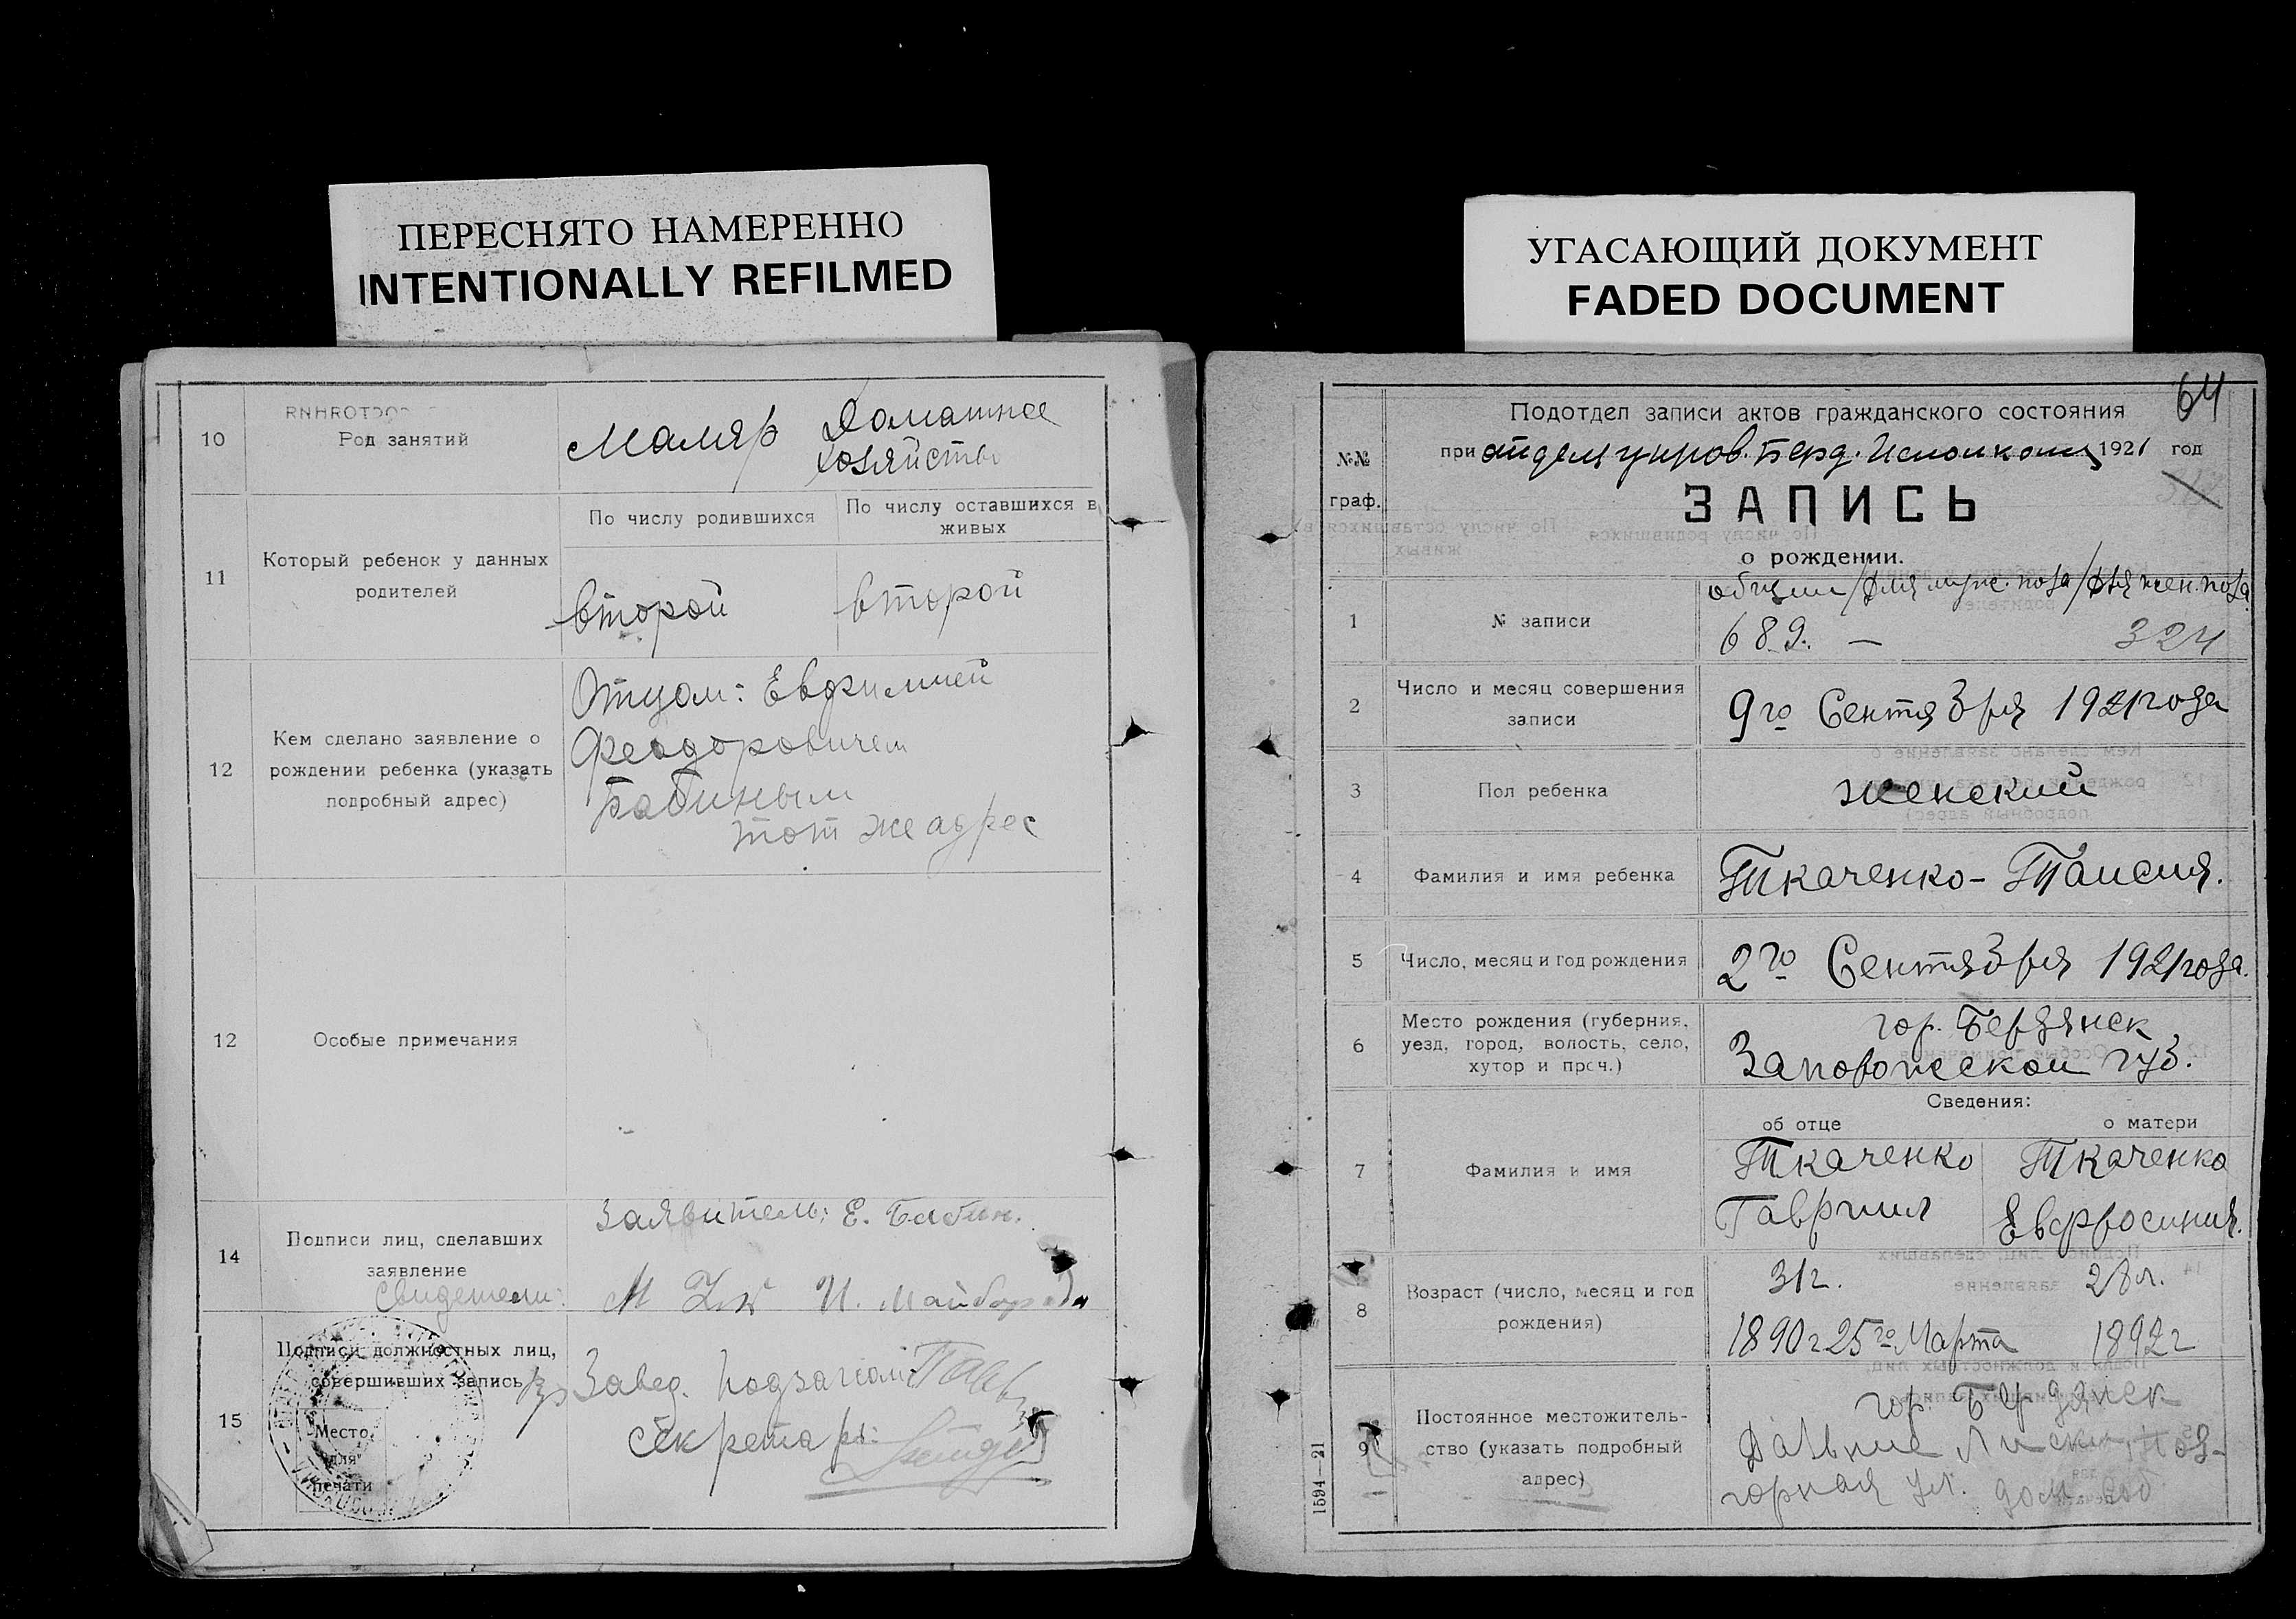 ПЕРЕСНЯТО НАМЕРЕННО
INTENTIONALLY REFILMED
10
Род занятий
Маляр
Домашнее
хозяйство
11
Который ребенок у данных
родителей
По числу родившихся
По числу оставшихся в
живых
второй
второй
12
Кем сделано заявление о
рождении ребенка (указать
подробный адрес)
Отцом: Евфимией
Феодоровичем
Бабиным
тот же адрес
12
Особые примечания
14
Подписи лиц, сделавших
заявление
Свидетели:
Заявитель: Е. Бабин.
И. Майборода
15
Подписи должностных лиц,
совершивших запись
Место
для
печати
Завед. Подзагсом
Секретарь:
УГАСАЮЩИЙ ДОКУМЕНТ
FADED DOCUMENT
64
№№
граф.
Подотдел записи актов гражданского состояния
при отделе управ. Берд. Исполкома 1921 год
ЗАПИСЬ
о рождении.
1
№ записи
общий / для муж. пола / для жен. пола
689. — 324
2
Число и месяц совершения
записи
9го Сентября 1921 года
3
Пол ребенка
женский
4
Фамилия и имя ребенка
Ткаченко - Таисия.
5
Число, месяц и год рождения
2го Сентября 1921 года.
6
Место рождения (губерния,
уезд, город, волость, село,
хутор и проч.)
гор. Бердянск
Запорожской губ.
Сведения:
об отце
о матери
7
Фамилия и имя
Ткаченко
Гавриил
Ткаченко
Евфросиния.
8
Возраст (число, месяц и год
рождения)
31 г.
28 л.
1890 г 25го Марта
1892 г
9
Постоянное местожитель-
ство (указать подробный
адрес)
гор. Бердянск
Дальние Лиски,
горная ул. дом
1594—21